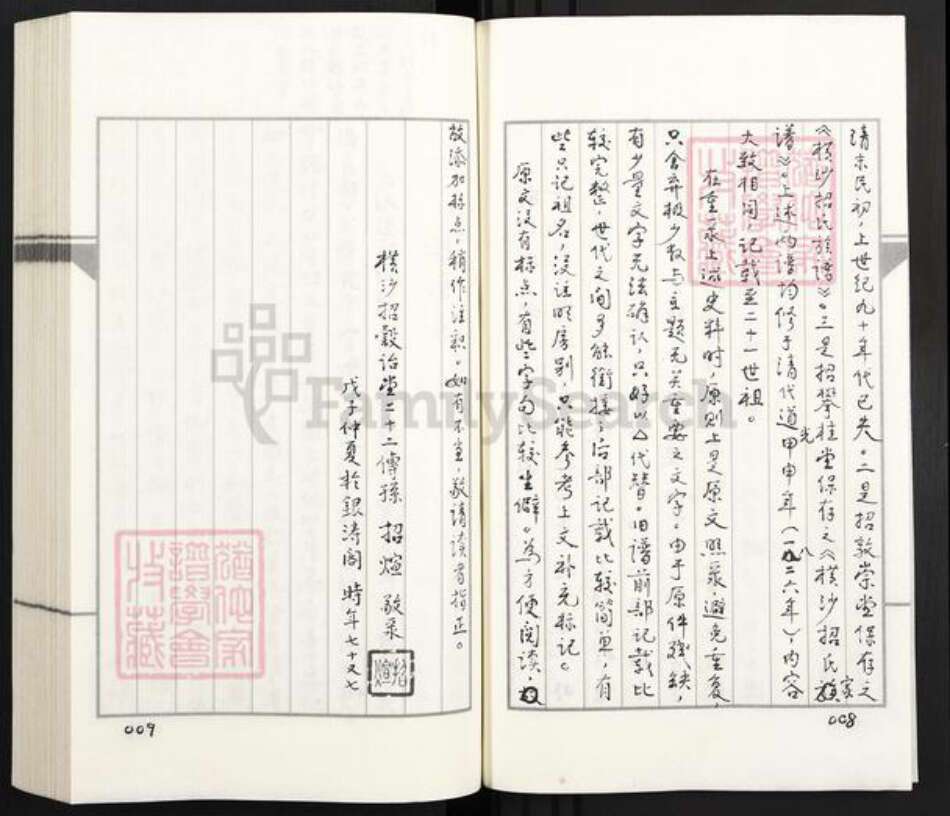 清末民初，上世纪九十年代已失。二是招敦崇堂保存之
《横沙招氏族谱》。三是招攀桂堂保存之《横沙招氏家族
谱》。上述两谱均修于清代道光甲申年（一八二六年），内容
大致相同，记载至二十一世祖。
在重录上述史料时，原则上是原文照录，避免重复，
只舍弃极少数与主题无关重要之文字。由于原件残缺，
有少量文字无法确认，只好以△代替。旧谱前部记载比
较完整，世代之间多能衔接；后部记载比较简单，有
些只记祖名，没注明房别，只能参考上文补充标记。
原文没有标点，有些字句比较生僻。为方便阅读，
008
故添加标点，稍作注积。如有不宜，敬请读者指正。
横沙招穀诒堂二十二傳孫 招煊 敬录
招煊
戊子仲夏於銀涛阁 時年七十又七
009
譜學會
收藏
FamilySearch